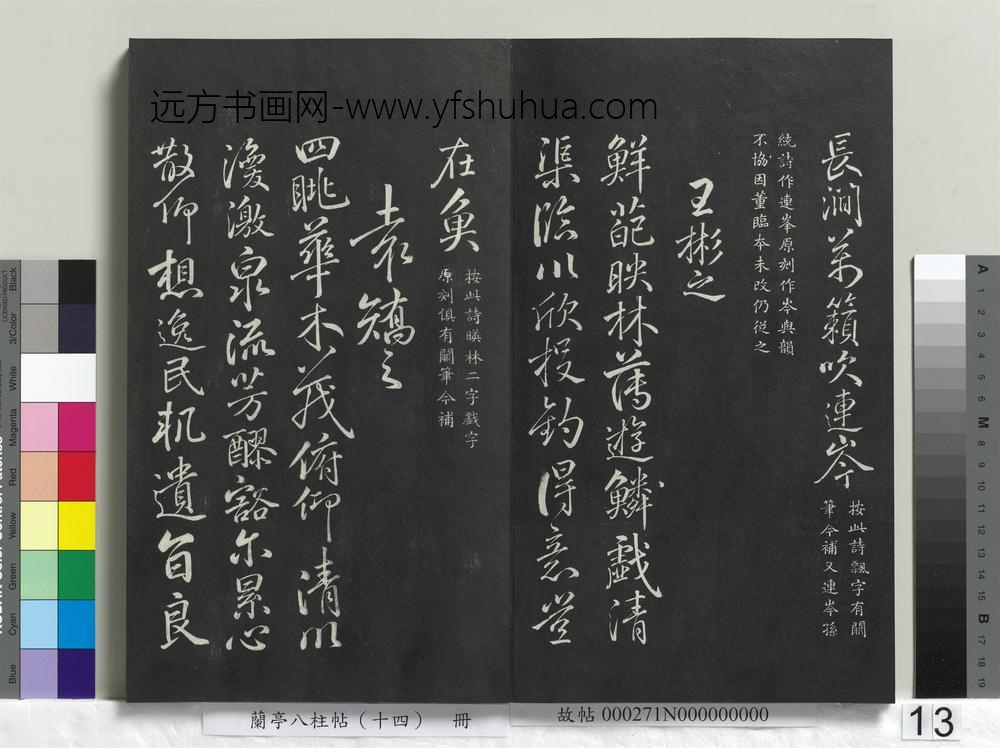 長澗萬籟吹連岑
按此詩飄字有闕
筆今補又連岑孫
統詩作連峯原刻作岑與韻
不協因董臨本未改仍從之
王彬之
鮮葩映林薄遊鱗戲清
渠臨川欣投釣得意豈
在魚
按此詩暎林二字戲字
原刻俱有闕筆今補
袁矯之
四眺華木茂俯仰清川
渙激泉流芳醪豁尔累心
散仰想逸民軌遺音良
远方书画网-www.yfshuhua.com
蘭亭八柱帖（十四） 冊
故帖 000271N000000000
13
Black
3/Color
White
Magenta
Red
Yellow
Green
Cyan
Blue
A 1 2 3 4 5 6 M 8 9 10 11 12 13 14 15 B 17 18 19